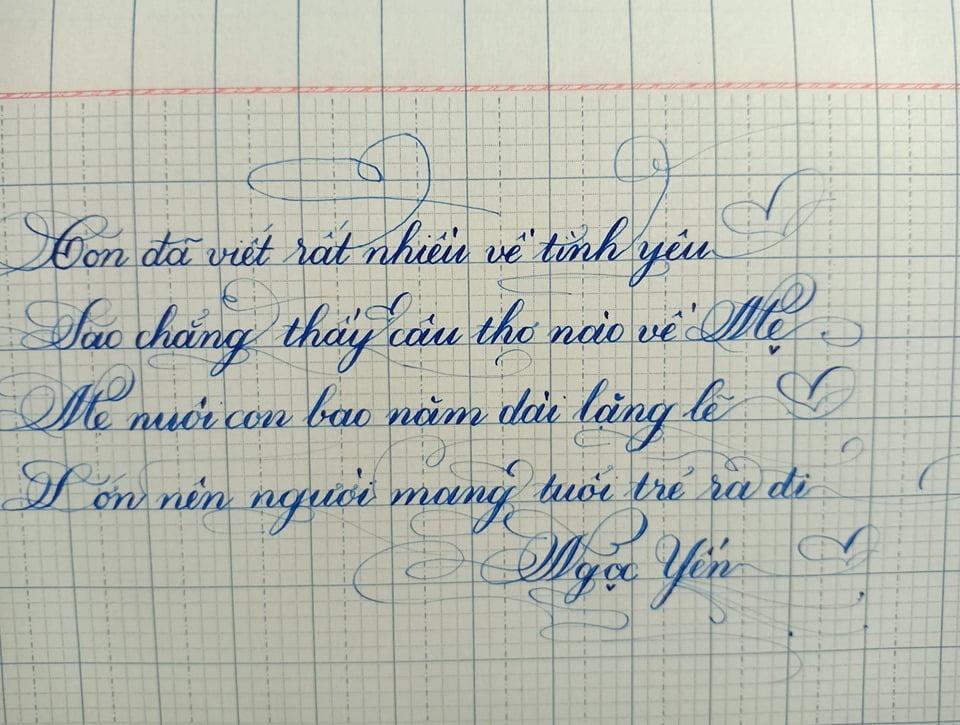 Con đã viết rất nhiều về tình yêu
Sao chẳng thấy câu thơ nào về Mẹ
Mẹ nuôi con bao năm dài lặng lẽ
Lớn nên người mang tuổi trẻ ra đi
Ngọc Yến